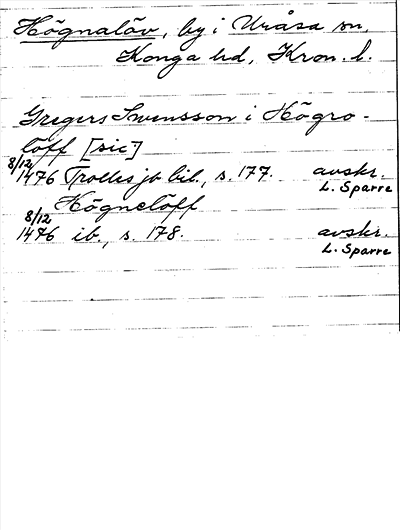 Högnalöv, by i Uråsa sn,
Konga hd, Kron. l.
Gregers Swensson i Högro-
löff [sic!]
8/12 1476 Trolles jb bil., s. 177. avskr. L. Sparre
Högnelöff
8/12 1476 ib., s. 178. avskr. L. Sparre